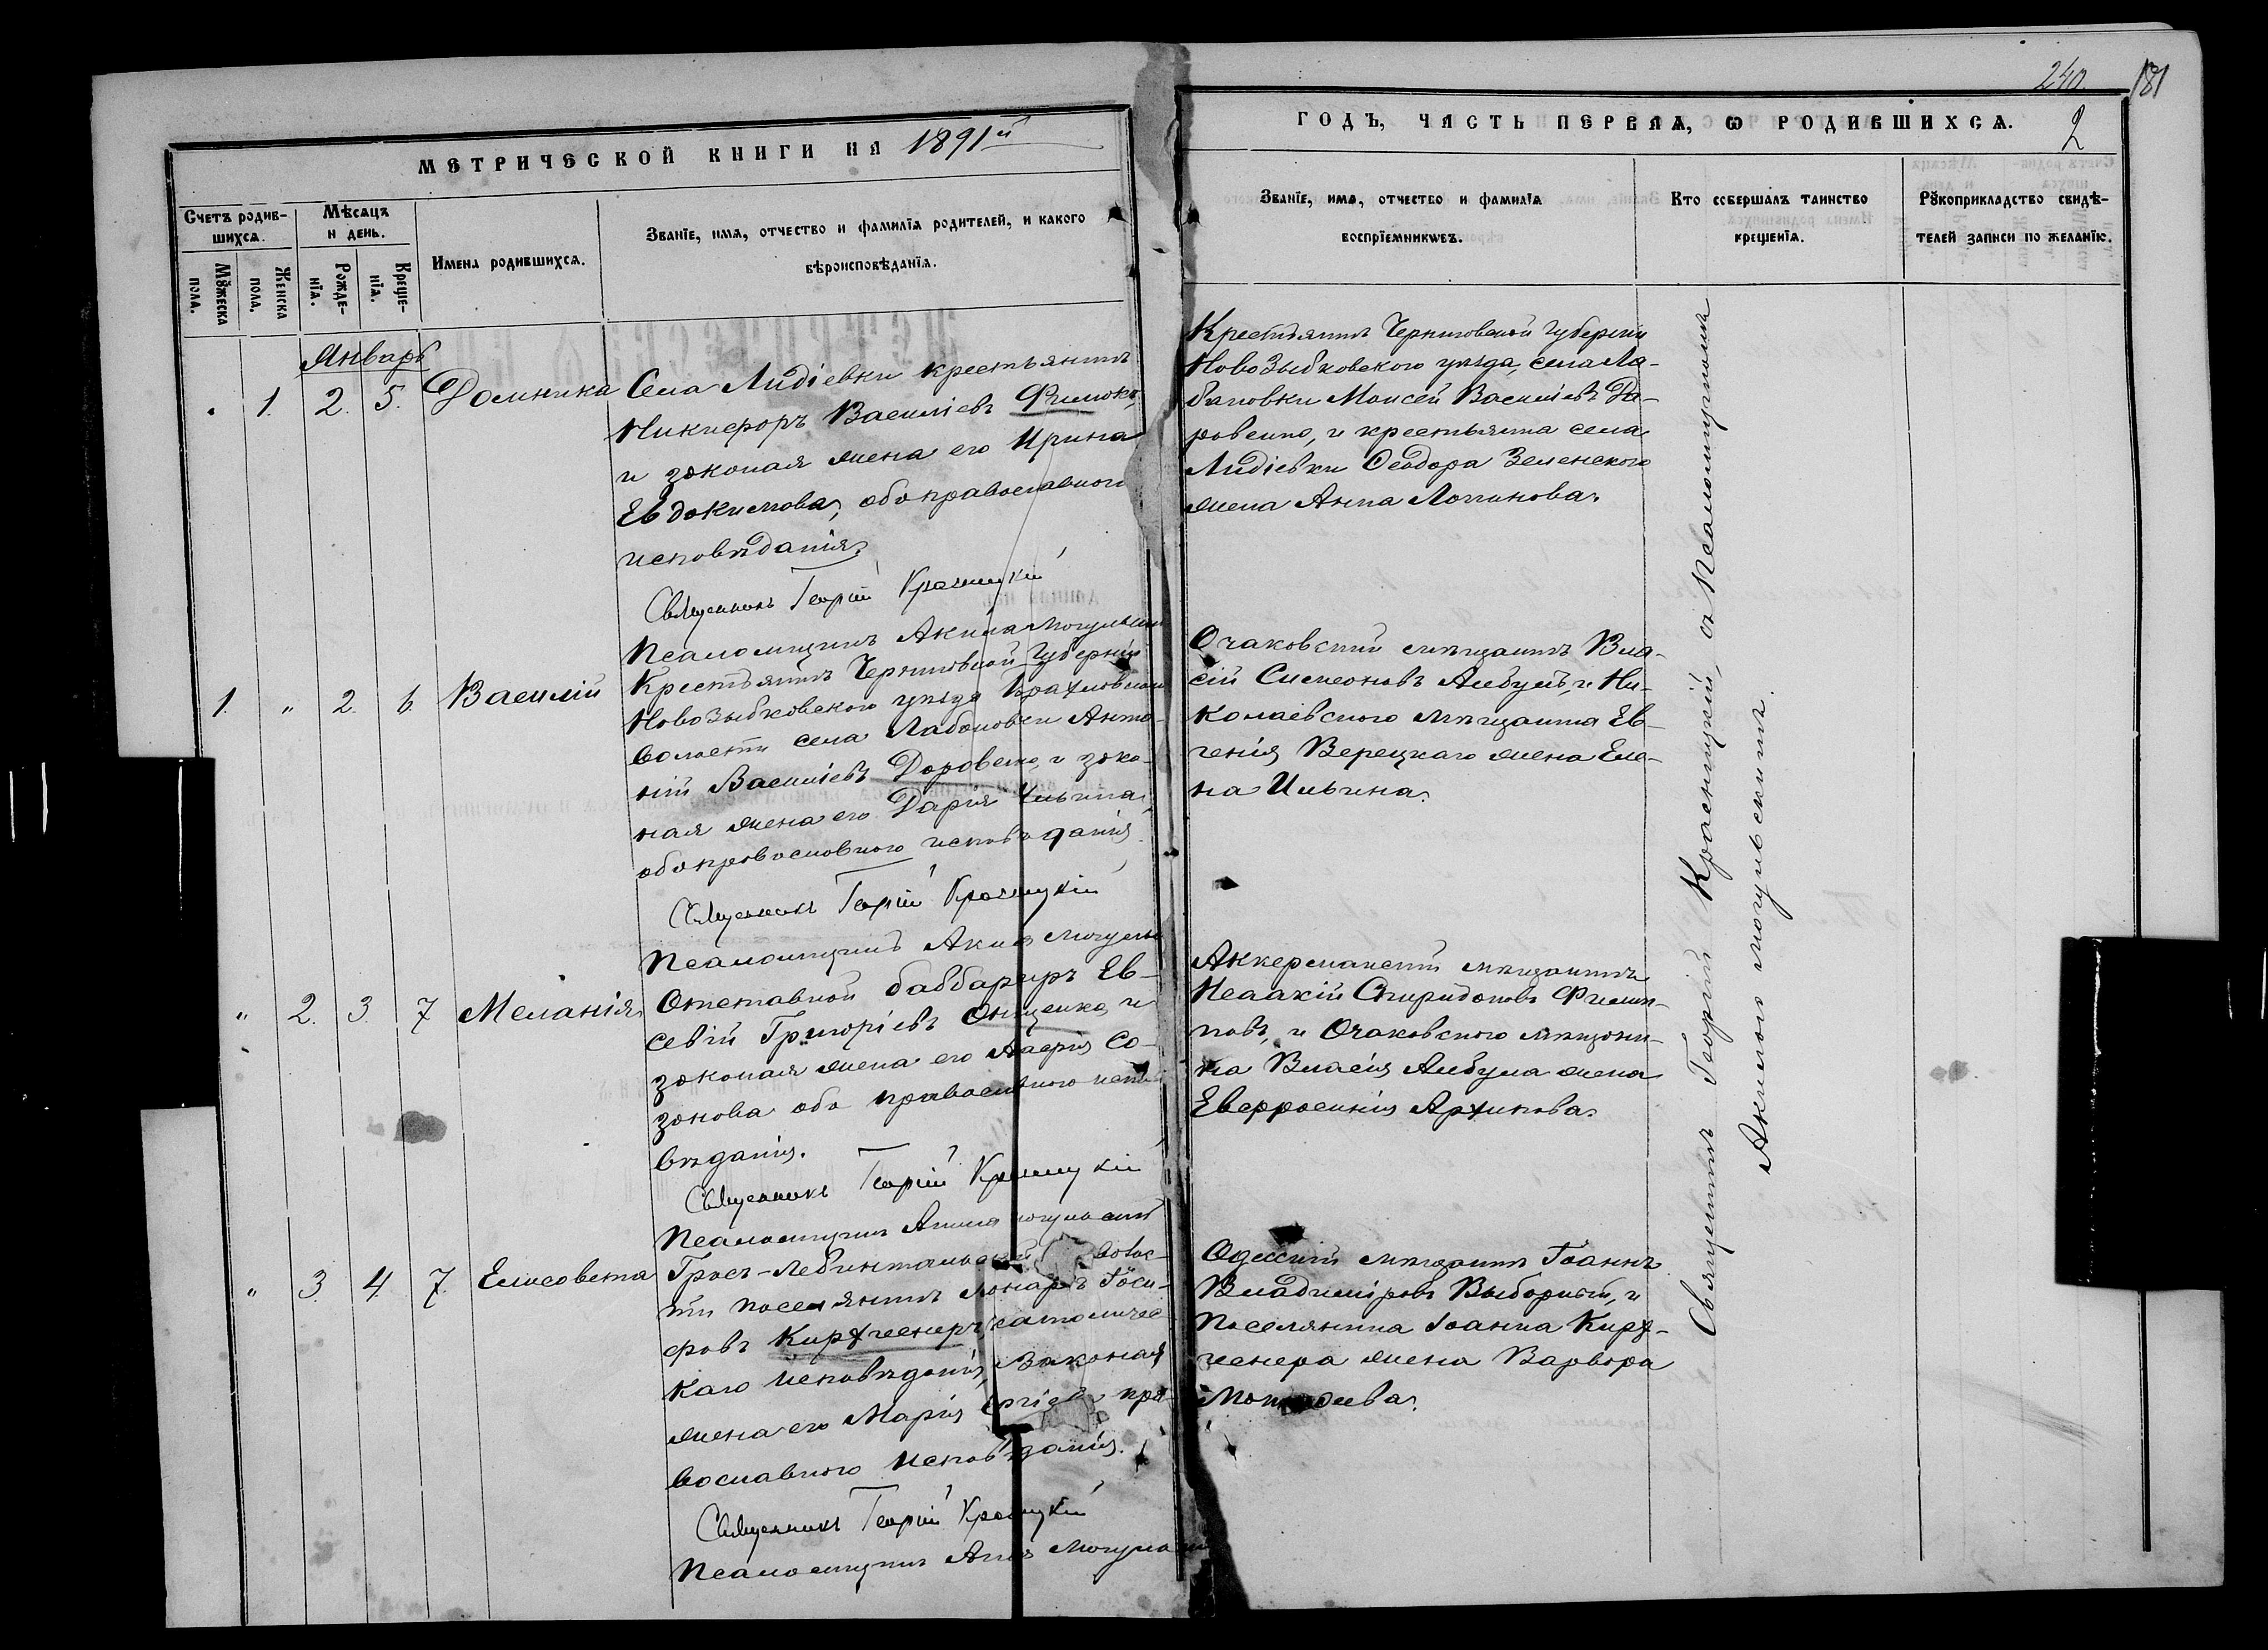 240. 181
МЕТРИЧЕСКОЙ КНИГИ НА 1891й
ГОДЪ, ЧАСТЬ ПЕРВАЯ, Ѡ РОДИВШИХСѦ. 2
Счетъ родив-
шихсѧ.
Мѣсѧцъ
и день.
Мꙋжеска
пола.
Женска
пола.
Рожде-
нїѧ.
Креще-
нїѧ.
Имена родившихсѧ.
Званїе, имѧ, отчество и фамилїѧ родителей, и какого
вѣроисповѣданїѧ.
Званїе, имѧ, отчество и фамилїѧ
воспрїемникѡвъ.
Кто совершалъ таинство
крещенїѧ.
Рꙋкоприкладство свидѣ-
телей записи по желанїю.
Январь
1. 2. 5. Домника
Села Лидіевки крестьянинъ
Никифоръ Васильевъ
и законая жена его Ирина
Евдокимова, оба православного
исповѣданія.
Священникъ Георгій Красницкій
Псаломщикъ Акила Могульскій
Крестьянинъ Черниговской губерніи
Новозыбковского уѣзда, села Ла-
бановки Моисей Васильевъ До-
ровенко, и крестьянина села
Лидіевки Ѳеодора Зеленского
жена Анна Логинова.
1. " 2. 6. Василій
Крестьянинъ Черниговской Губерніи
Новозыбковского уѣзда
волости села Лабановки Анто-
ній Васильевъ Доровенко, и зако-
ная жена его Дарія Ильина,
оба православного исповѣданія.
Священникъ Георгій Красницкій
Псаломщикъ Акила Могульскій
Очаковскій мѣщанинъ Вла-
сій Симеоновъ Албулъ, и Ни-
колаевского мѣщанина Ев-
генія Верецкаго жена Еле-
на Ильина.
" 2. 3. 7 Меланія
Отставной бомбардиръ Ев-
севій Григоріевъ Онищенко, и
законая жена его
Со-
зонова оба православного испо-
вѣданія.
Священникъ Георгій Красницкій
Псаломщикъ Акила Могульскій
Аккерманскій мѣщанинъ
Исаакій Спиридоновъ Филип-
повъ, и Очаковского мѣщани-
на Власія Албула жена
Евфросинія Архипова.
" 3. 4. 7. Елисавета
Грос-Либентальской Волос-
ти поселянинъ Іоси-
фовъ Кирхгенеръ, католичес-
каго исповѣданія, законая
жена его Марія пра-
вославного исповѣданія.
Священникъ Георгій Красницкій
Псаломщикъ Акила Могульскій
Одесскій мѣщанинъ Іоаннъ
Владиміровъ Выборный, и
поселянина Іоанна Кирх-
генера жена Варвара
Священникъ Георгій Красницкій, съ Псаломщикомъ
Акилою Могульскимъ.